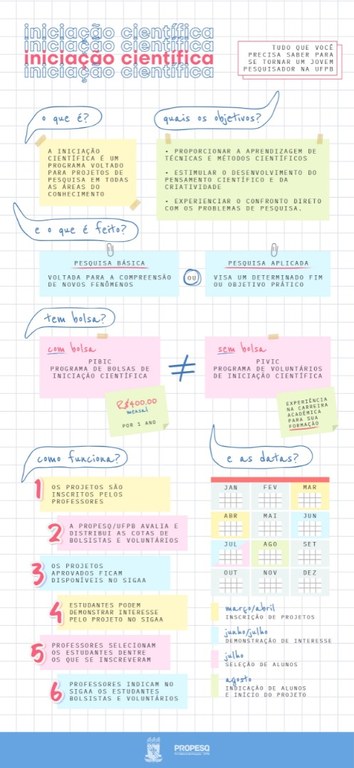 iniciação científica
iniciação científica
iniciação científica
iniciação científica
TUDO QUE VOCÊ
PRECISA SABER PARA
SE TORNAR UM JOVEM
PESQUISADOR NA UFPB
o que é?
A INICIAÇÃO
CIENTÍFICA É UM
PROGRAMA VOLTADO
PARA PROJETOS DE
PESQUISA EM TODAS
AS ÁREAS DO
CONHECIMENTO
quais os objetivos?
• PROPORCIONAR A APRENDIZAGEM DE
TÉCNICAS E MÉTODOS CIENTÍFICOS
• ESTIMULAR O DESENVOLVIMENTO DO
PENSAMENTO CIENTÍFICO E DA
CRIATIVIDADE
• EXPERIENCIAR O CONFRONTO DIRETO
COM OS PROBLEMAS DE PESQUISA.
e o que é feito?
PESQUISA BÁSICA
VOLTADA PARA A COMPREENSÃO
DE NOVOS FENÔMENOS
ou
PESQUISA APLICADA
VISA UM DETERMINADO FIM
OU OBJETIVO PRÁTICO
tem bolsa?
com bolsa
PIBIC
PROGRAMA DE BOLSAS DE
INICIAÇÃO CIENTÍFICA
R$400,00
mensal
POR 1 ANO
≠
sem bolsa
PIVIC
PROGRAMA DE VOLUNTÁRIOS
DE INICIAÇÃO CIENTÍFICA
EXPERIÊNCIA
NA CARREIRA
ACADÊMICA
PARA SUA
FORMAÇÃO
como funciona?
1 OS PROJETOS SÃO
INSCRITOS PELOS
PROFESSORES
2 A PROPESQ/UFPB AVALIA E
DISTRIBUI AS COTAS DE
BOLSISTAS E VOLUNTÁRIOS
3 OS PROJETOS
APROVADOS FICAM
DISPONÍVEIS NO SIGAA
4 ESTUDANTES PODEM
DEMONSTRAR INTERESSE
PELO PROJETO NO SIGAA
5 PROFESSORES SELECIONAM
OS ESTUDANTES DENTRE
OS QUE SE INSCREVERAM
6 PROFESSORES INDICAM NO
SIGAA OS ESTUDANTES
BOLSISTAS E VOLUNTÁRIOS
e as datas?
JAN FEV MAR
ABR MAI JUN
JUL AGO SET
OUT NOV DEZ
março/abril
INSCRIÇÃO DE PROJETOS
junho/julho
DEMONSTRAÇÃO DE INTERESSE
julho
SELEÇÃO DE ALUNOS
agosto
INDICAÇÃO DE ALUNOS
E INÍCIO DO PROJETO
PROPESQ